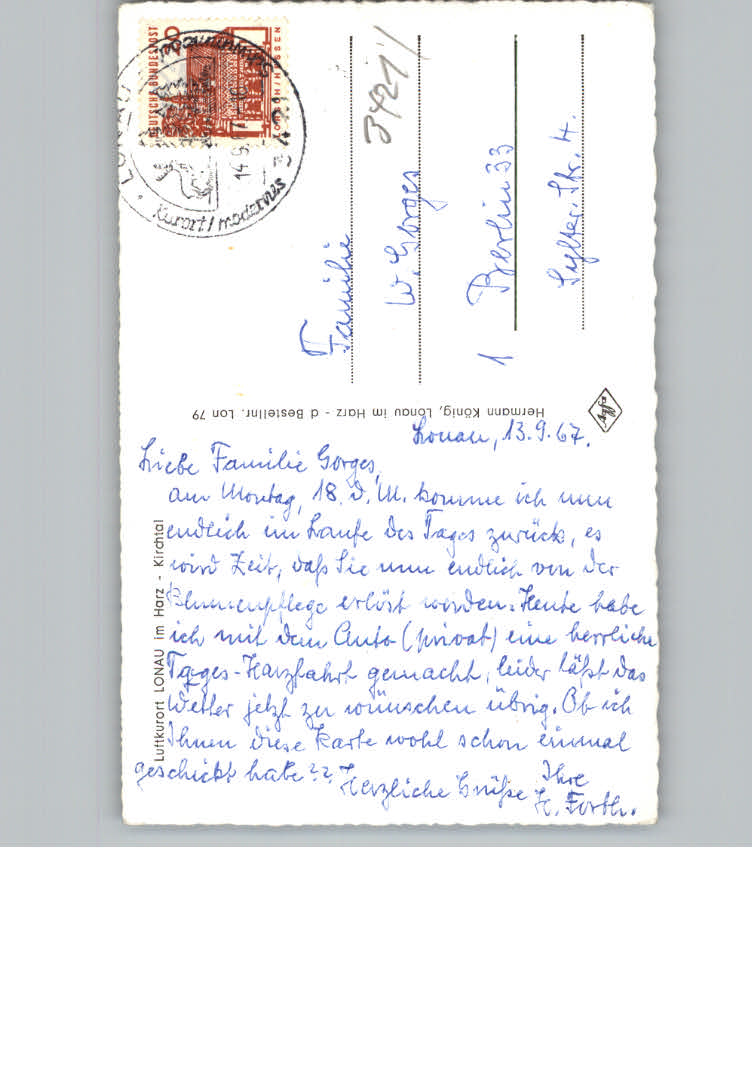 Lonau, 13.9.67.
Liebe Familie Gorges,
am Montag, 18. d. M. komme ich nun
endlich im Laufe des Tages zurück, es
wird Zeit, daß Sie nun endlich von der
Blumenpflege erlöst werden. Heute habe
ich mit dem Auto (privat) eine herrliche
Tages-Harzfahrt gemacht, leider läßt das
Wetter jetzt zu wünschen übrig. Ob ich
Ihnen diese Karte wohl schon einmal
geschickt habe?? Herzliche Grüße Ihre
Familie
W. Gorges
1 Berlin 33
Sylter Str. 4.
3421
DEUTSCHE BUNDESPOST
LORSCH/HESSEN
LONAU
Kurort/modernes
Luftkurort LONAU im Harz - Kirchtal
Hermann König, Lonau im Harz - d Bestellnr. Lon 79
Agfa